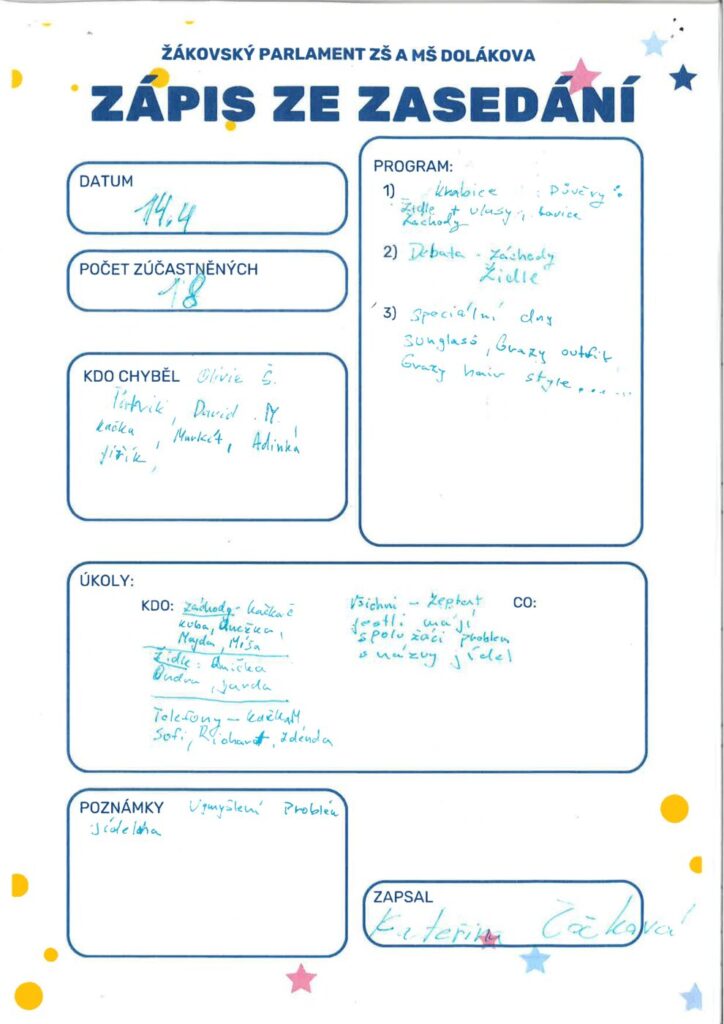 ŽÁKOVSKÝ PARLAMENT ZŠ A MŠ DOLÁKOVA
ZÁPIS ZE ZASEDÁNÍ
DATUM
14.4
POČET ZÚČASTNĚNÝCH
18
KDO CHYBĚL Olivie Š.
David M.
kačka, Markét, Adinka
Jiřík,
PROGRAM:
1) krabice Důvěry:
Židle + vlasy, lavice
záchody
2) Debata - záchody
Židle
3) speciální dny
sunglass, Crazy outfit,
Crazy hair style......
ÚKOLY:
KDO: záchody - kačka Č
kuba, Anežka,
Majda, Míša
Židle: Anička
Ondra, Jarda
Telefony - kačka M
Sofi, Richard, Zdenda
Všichni - Zeptat
jestli mají
spolužáci problém
s názvy jídel
CO:
POZNÁMKY Vymyšlení Problém
jídelna
ZAPSAL
Kateřina